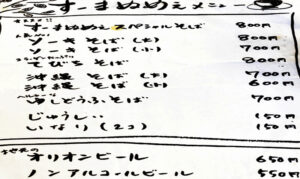 すーまぬめぇメニュー
すーまぬめぇスペシャルそば 800円
ソーキそば(大) 800円
ソーキそば(小) 700円
てびちそば 800円
沖縄そば(大) 700円
沖縄そば(小) 600円
ゆしどうふそば 700円
じゅうしぃ 150円
いなり(2コ) 150円
オリオンビール 650円
ノンアルコールビール 550円